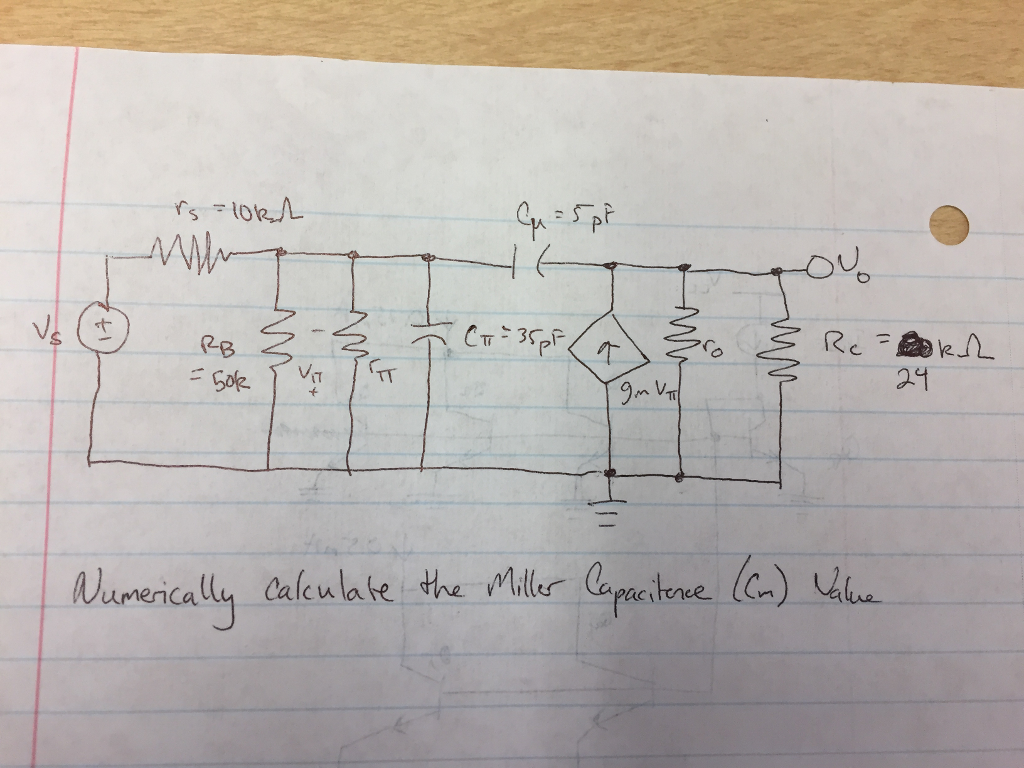 rs = 10kΩ
Cμ = 5pF
Vo
Vs
+
-
RB
= 50k
-
Vπ
+
rπ
Cπ = 35pF
gmVπ
ro
Rc = kΩ
24
Numerically calculate the Miller Capacitence (Cm) Value